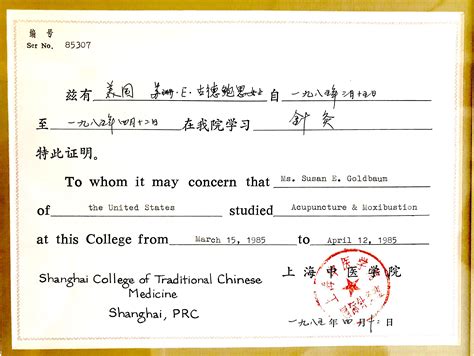 编号
Ser No. 85307
兹有 美国 苏珊·E·古德鲍思女士 自 一九八五年三月十五日
至 一九八五年四月十二日 在我院学习 针灸
特此证明。
To whom it may concern that Ms. Susan E. Goldbaum
of the United States studied Acupuncture & Moxibustion
at this College from March 15, 1985 to April 12, 1985
Shanghai College of Traditional Chinese
Medicine
Shanghai, PRC
上海中医学院
一九八五年四月十二日